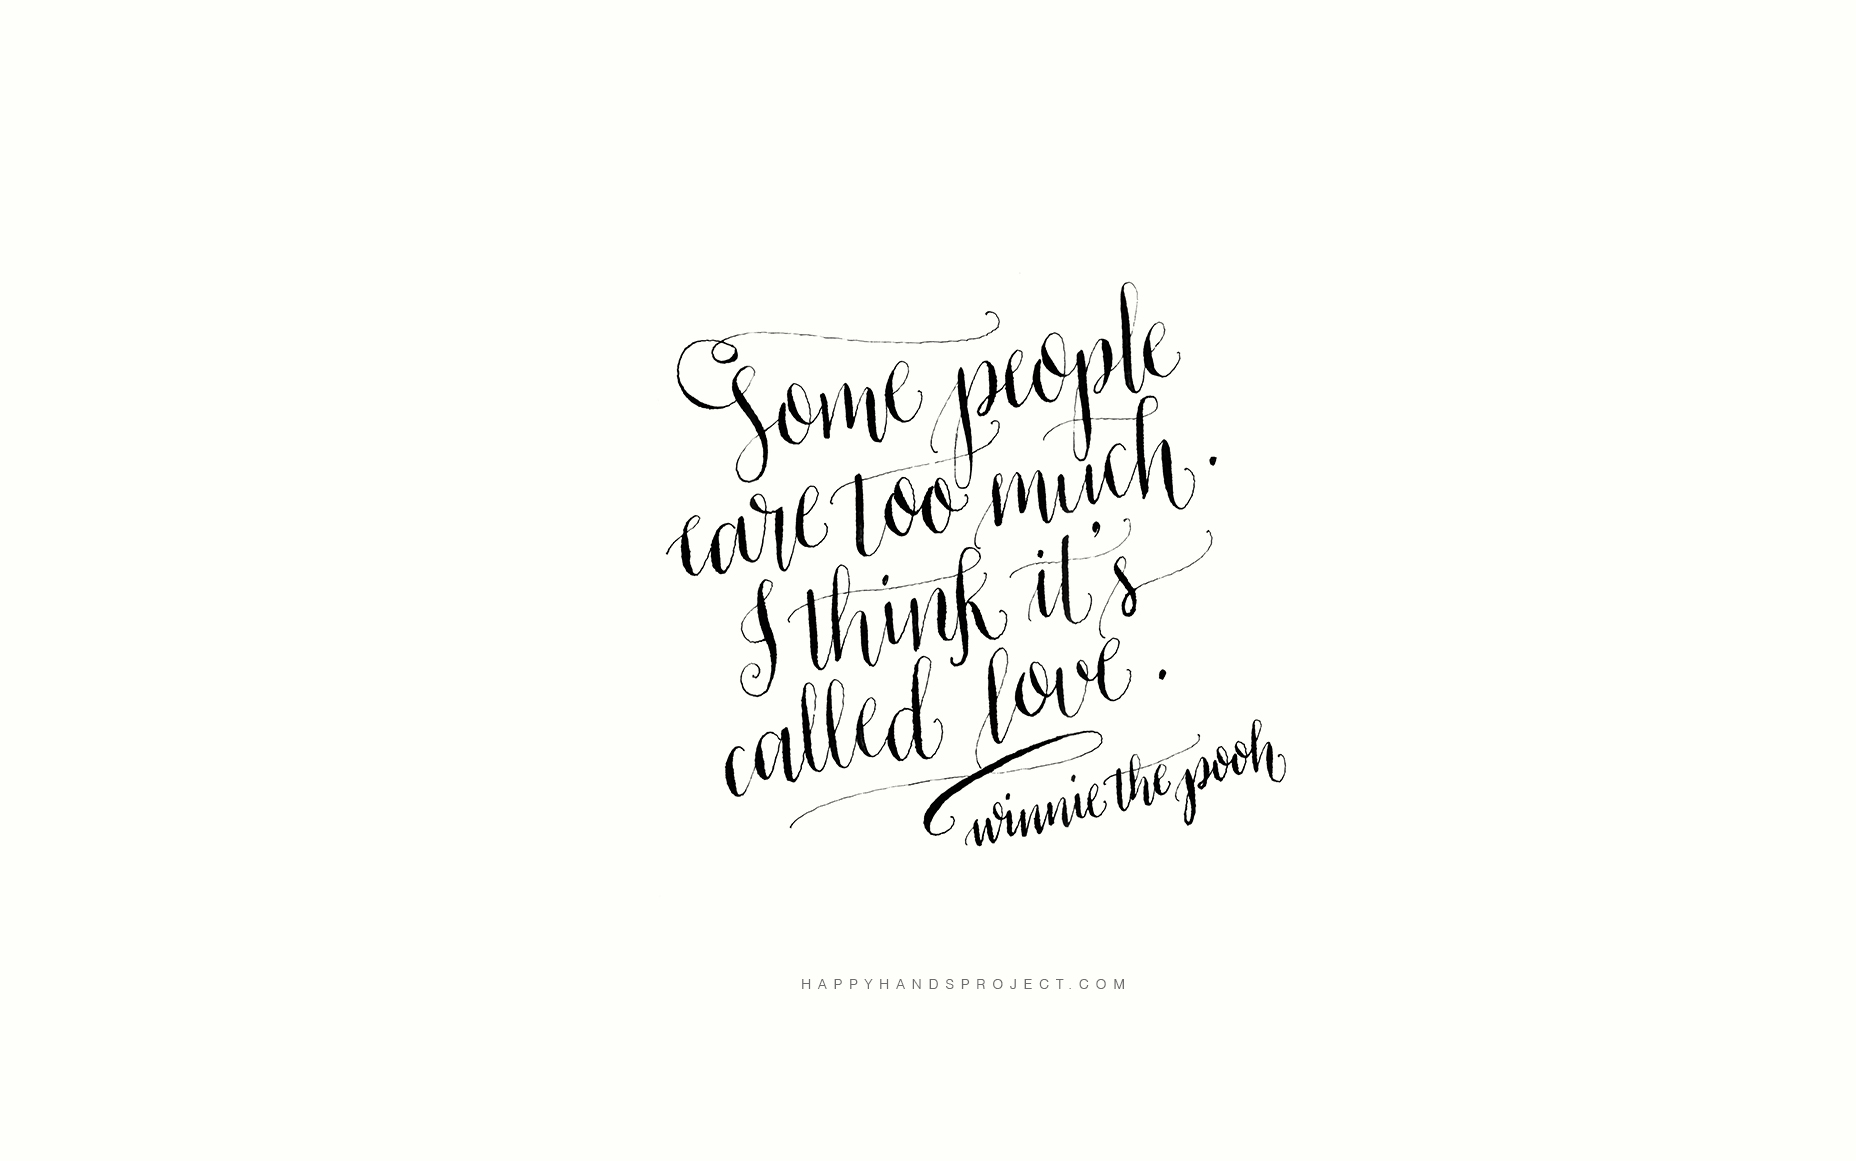 Some people
care too much.
I think it's
called love.
winnie the pooh
HAPPYHANDSPROJECT.COM